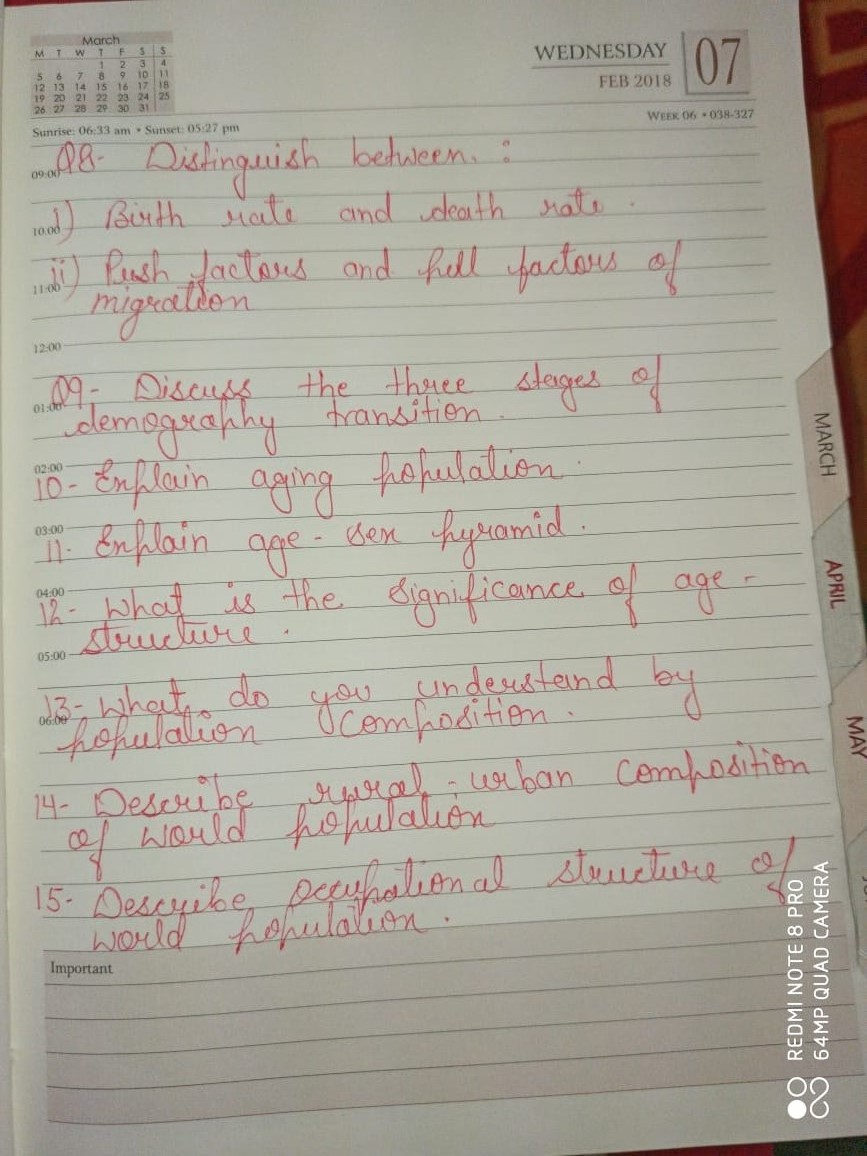 March
M T W T F S S
1 2 3 4
5 6 7 8 9 10 11
12 13 14 15 16 17 18
19 20 21 22 23 24 25
26 27 28 29 30 31
WEDNESDAY 07
FEB 2018
WEEK 06 • 038-327
Sunrise: 06:33 am • Sunset: 05:27 pm
09:00 Q8- Distinguish between. :
10.00 i) Birth rate and death rate.
11:00 ii) Push factors and pull factors of
migration
12:00
01:00 Q9- Discuss the three stages of
demography transition.
02:00
10- Explain aging population.
03:00
11- Explain age-sex pyramid.
04:00
12- What is the significance of age-
structure.
05:00
13- What do you understand by
06:00 population composition.
14- Describe rural-urban composition
of world population
15- Describe occupational structure of
world population.
Important
MARCH
APRIL
MAY
REDMI NOTE 8 PRO
64MP QUAD CAMERA